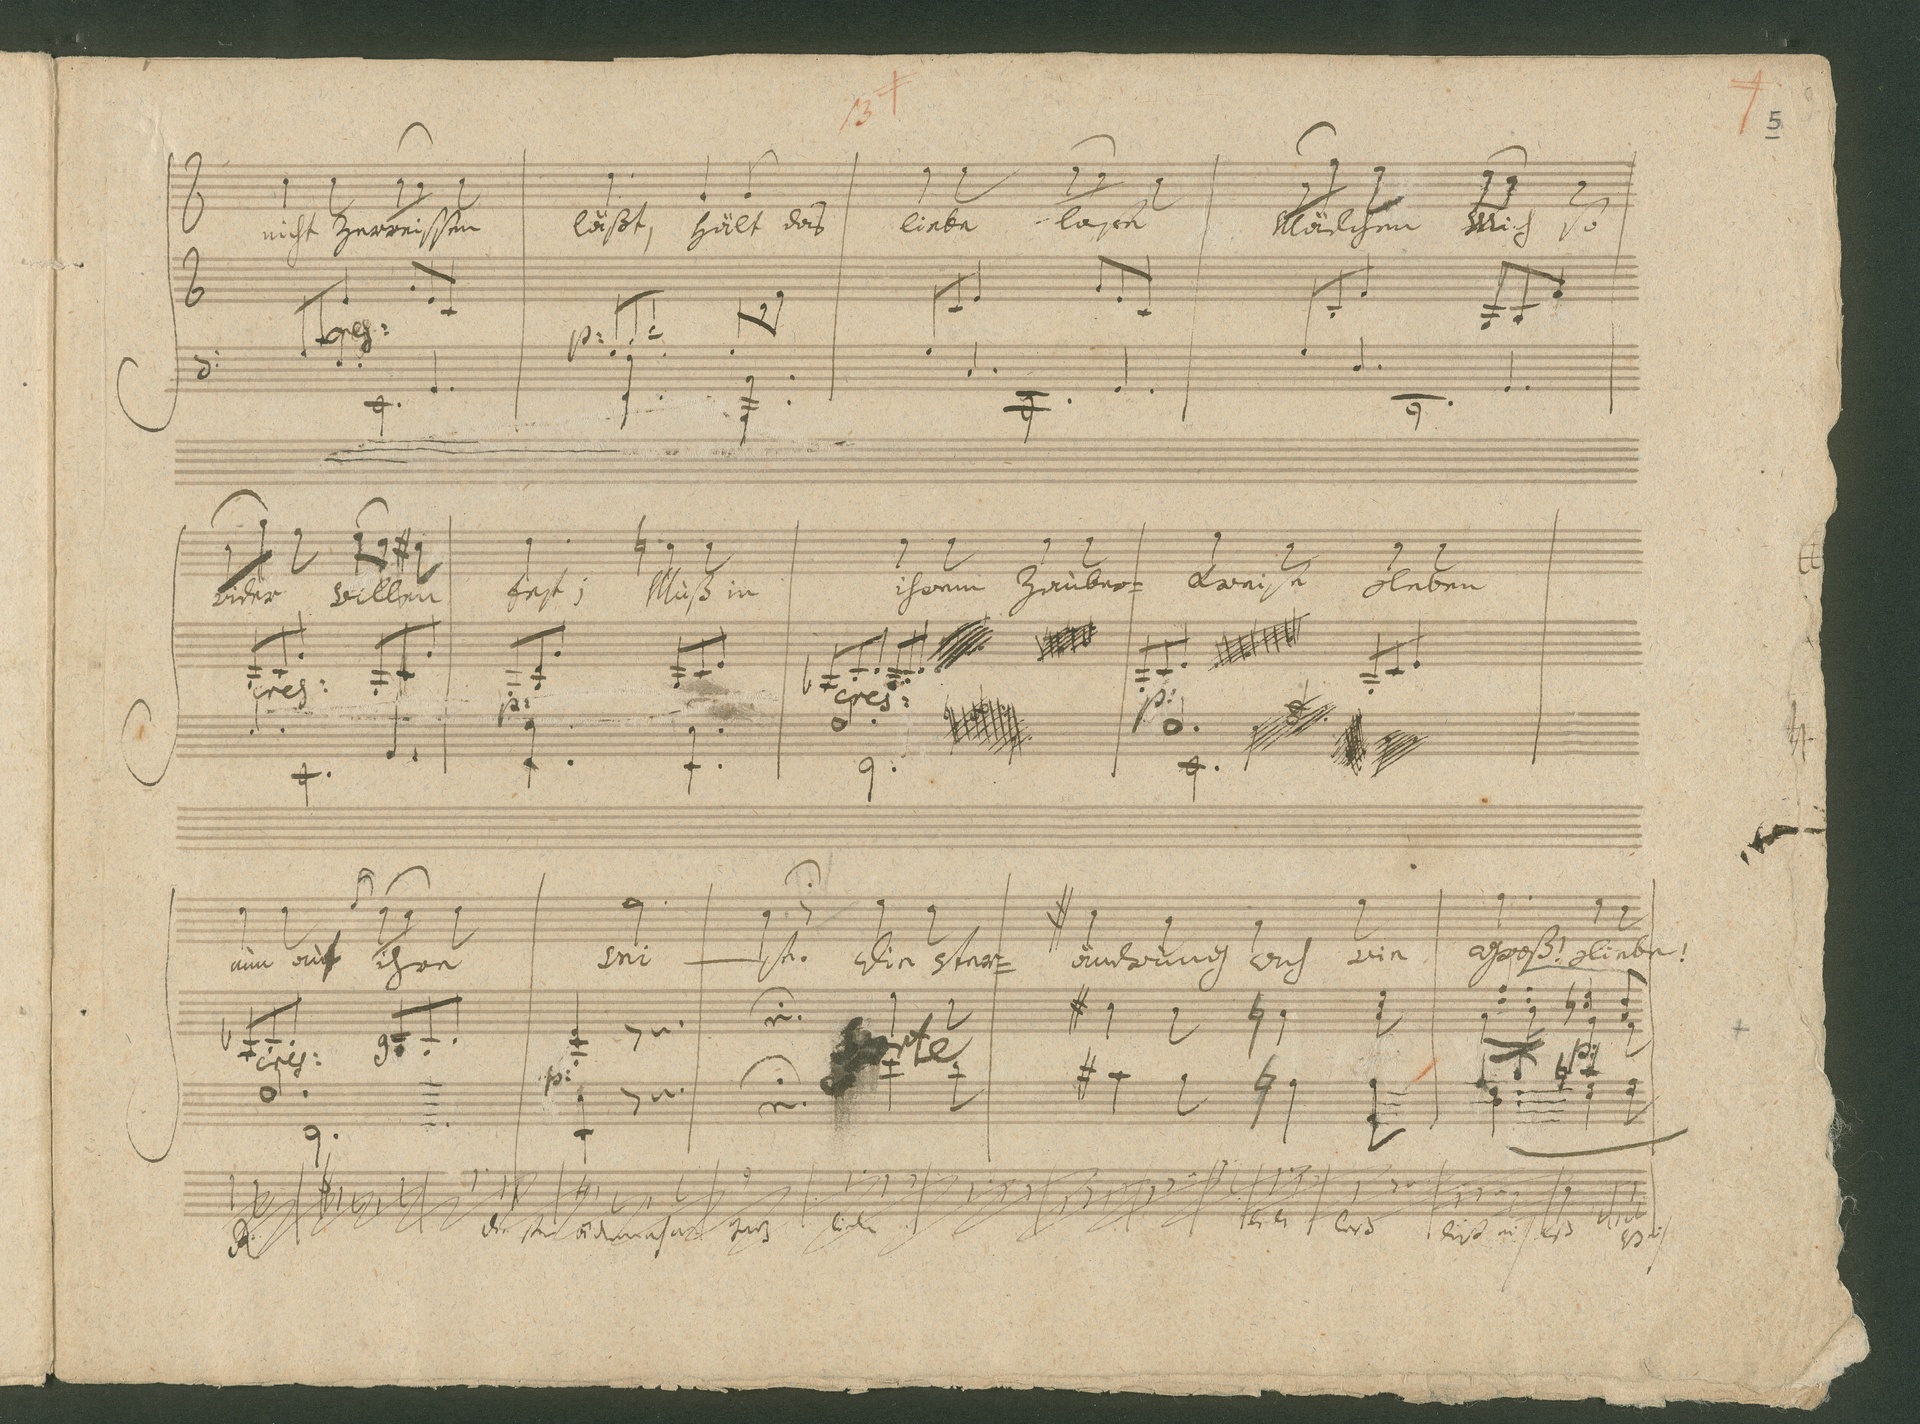 13
5
nicht zerreissen läßt, hält das liebe lose Mädchen Mich so
cres: p:
wider willen fest; Muß in ihrem Zauber= Kreise leben
cres: p: cres: p:
nun auf ihre wei — se. die Ver= ändrung ach wie groß! liebe!
cres: p: forte p:
die